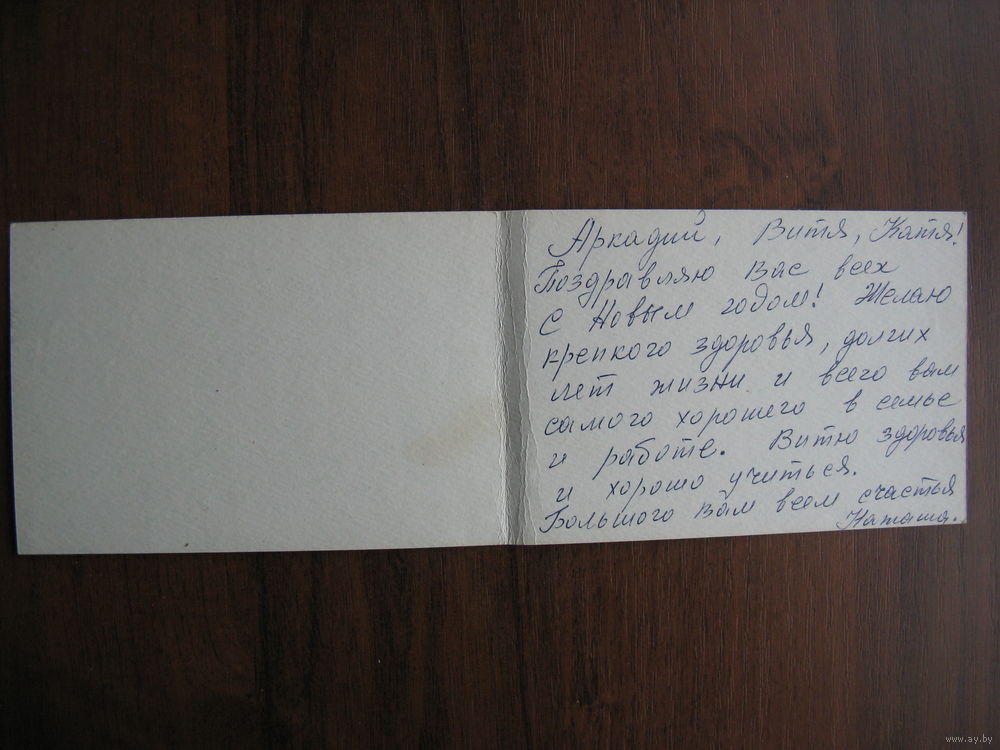 Аркадий, Витя, Катя!
Поздравляю Вас всех
с Новым годом! Желаю
крепкого здоровья, долгих
лет жизни и всего вам
самого хорошего в семье
и работе. Витю здоровья
и хорошо учиться.
Большого Вам всем счастья
Наташа.
www.ay.by